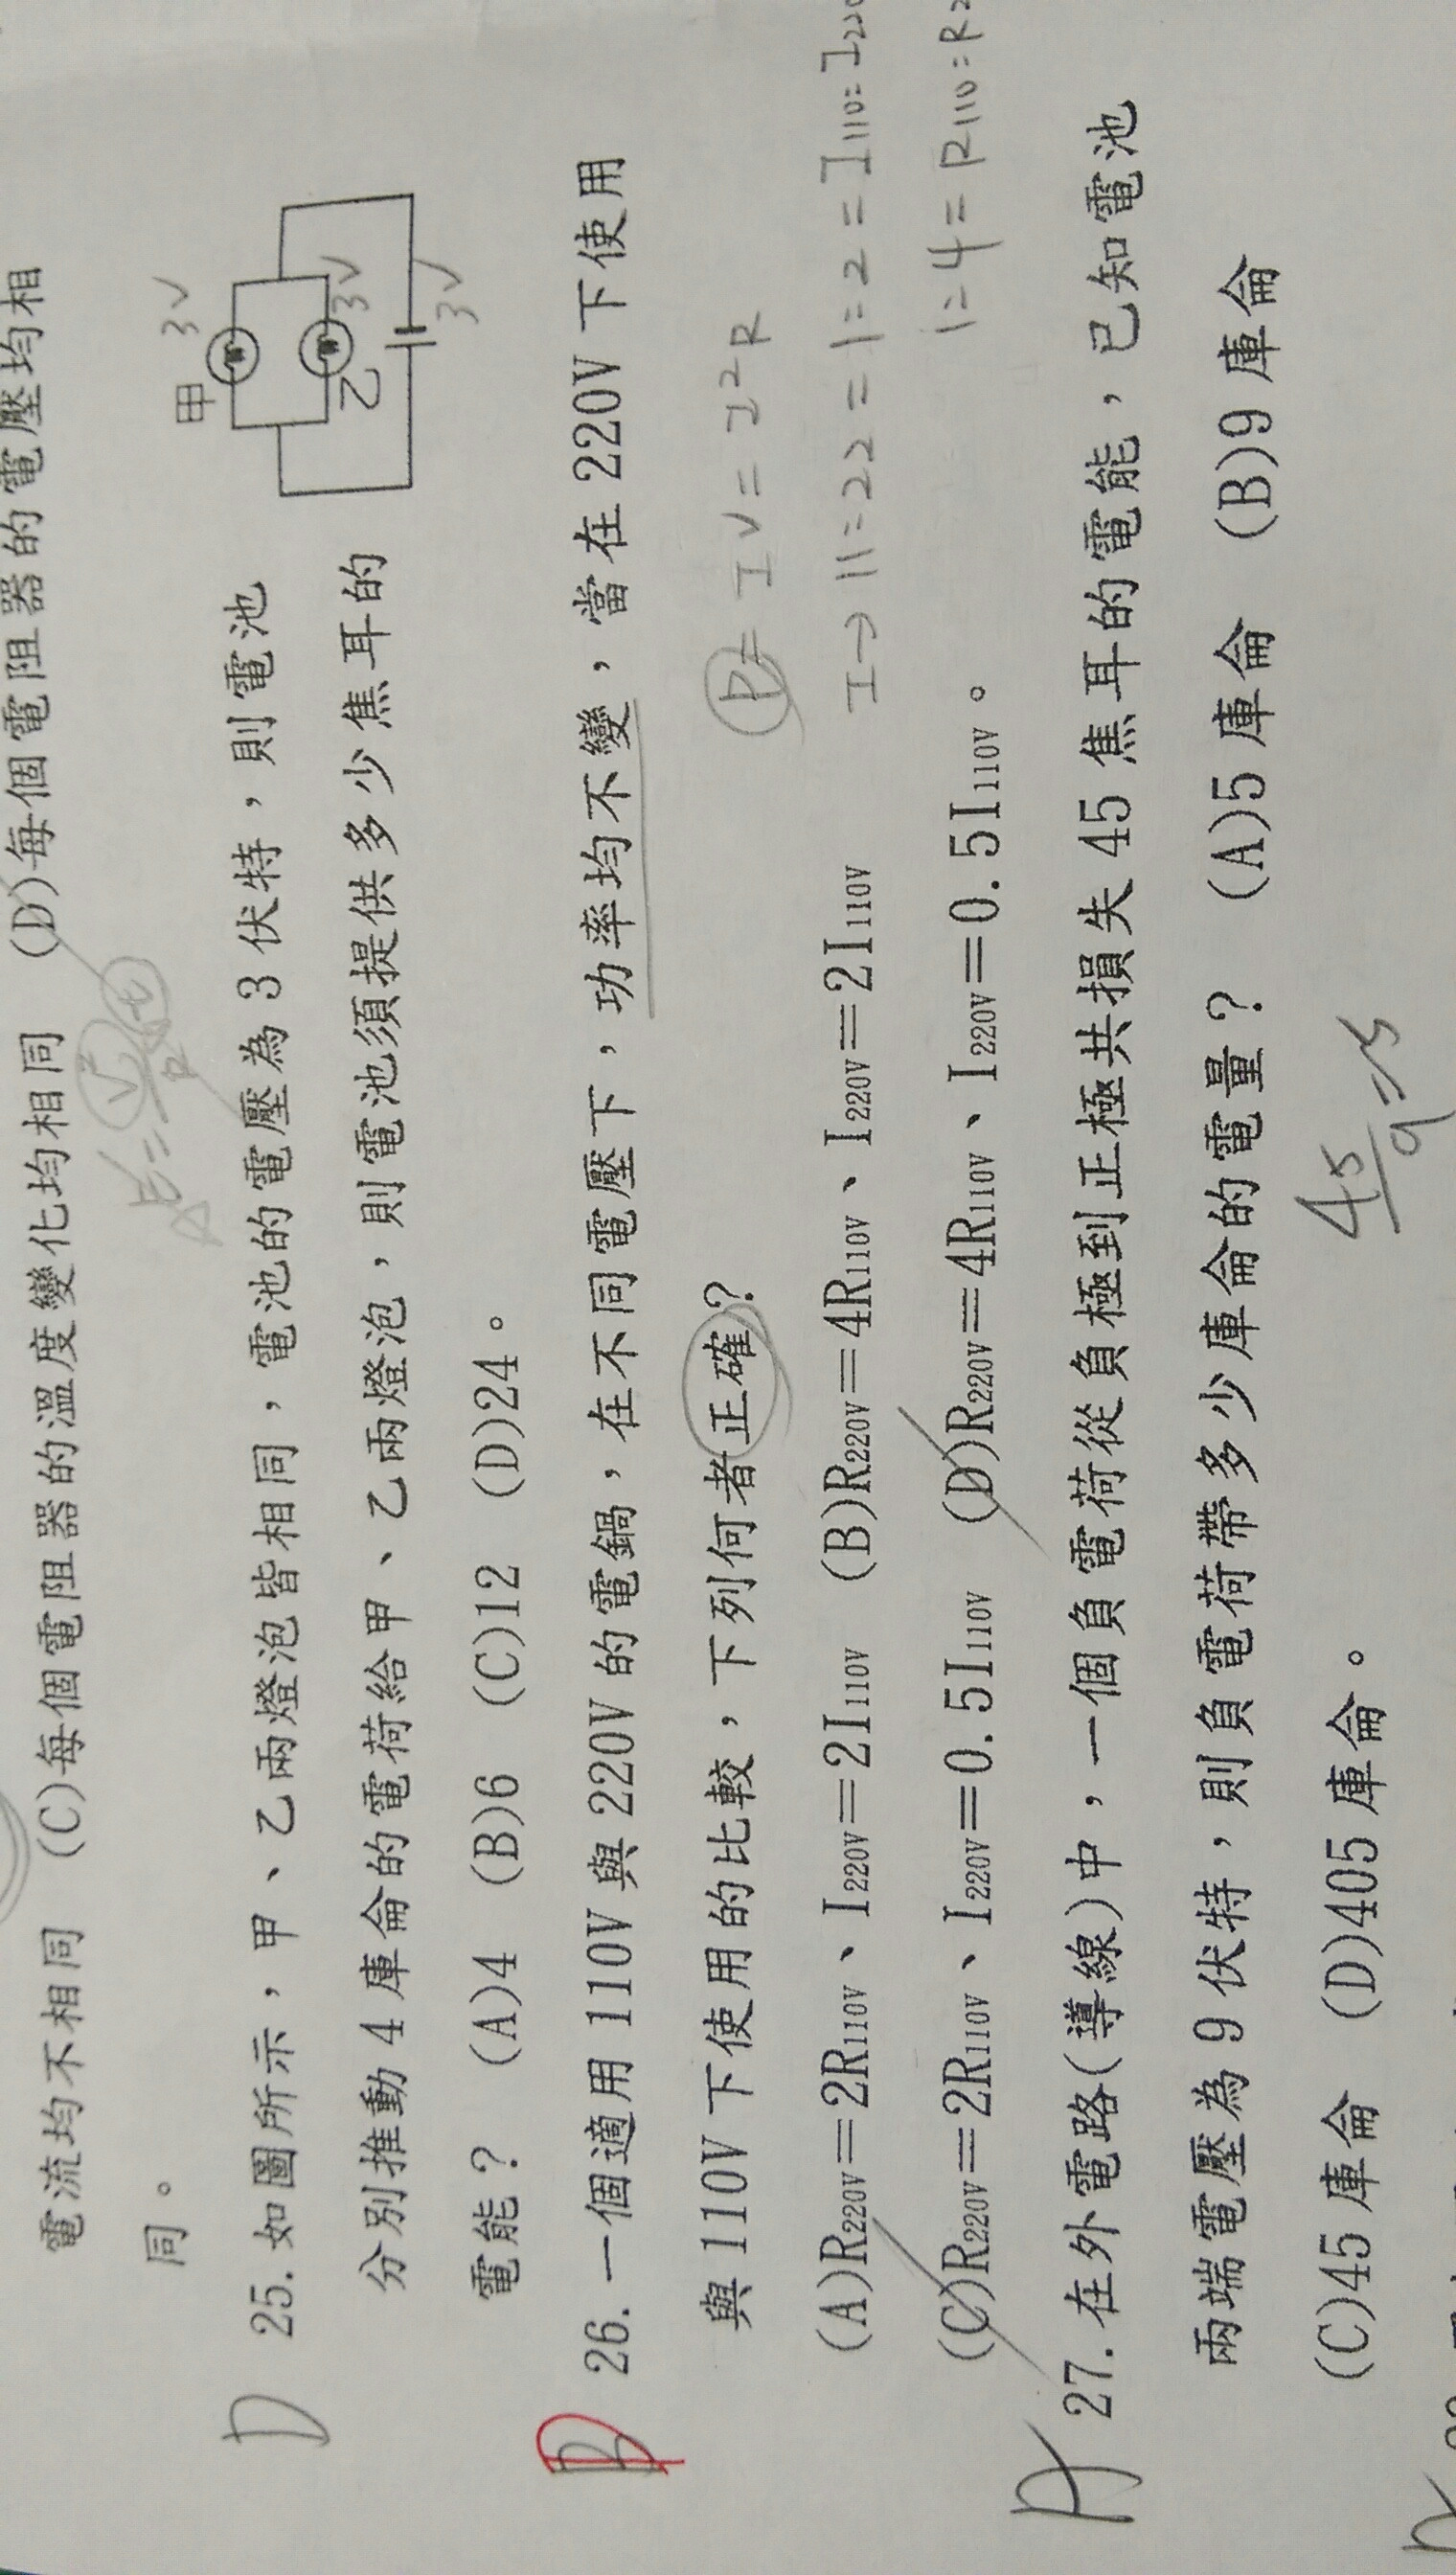 電流均不相同 (C)每個電阻器的溫度變化均相同 (D)每個電阻器的電壓均相
同。
D 25.如圖所示，甲、乙兩燈泡皆相同，電池的電壓為 3 伏特，則電池
分別推動 4 庫侖的電荷給甲、乙兩燈泡，則電池須提供多少焦耳的
電能？ (A)4 (B)6 (C)12 (D)24。
甲 3V
乙 3V
3V
26.一個適用 110V 與 220V 的電鍋，在不同電壓下，功率均不變，當在 220V 下使用
與 110V 下使用的比較，下列何者正確？
P = IV = I²R
(A)R220V＝2R110V、I220V＝2I110V (B)R220V＝4R110V、I220V＝2I110V
I→11:22 = 1:2 = I110:I220
(C)R220V＝2R110V、I220V＝0.5I110V (D)R220V＝4R110V、I220V＝0.5I110V。
1:4 = R110:R
A 27.在外電路(導線)中，一個負電荷從負極到正極共損失 45 焦耳的電能，已知電池
兩端電壓為 9 伏特，則負電荷帶多少庫侖的電量？ (A)5 庫侖 (B)9 庫侖
(C)45 庫侖 (D)405 庫侖。
45/9=5